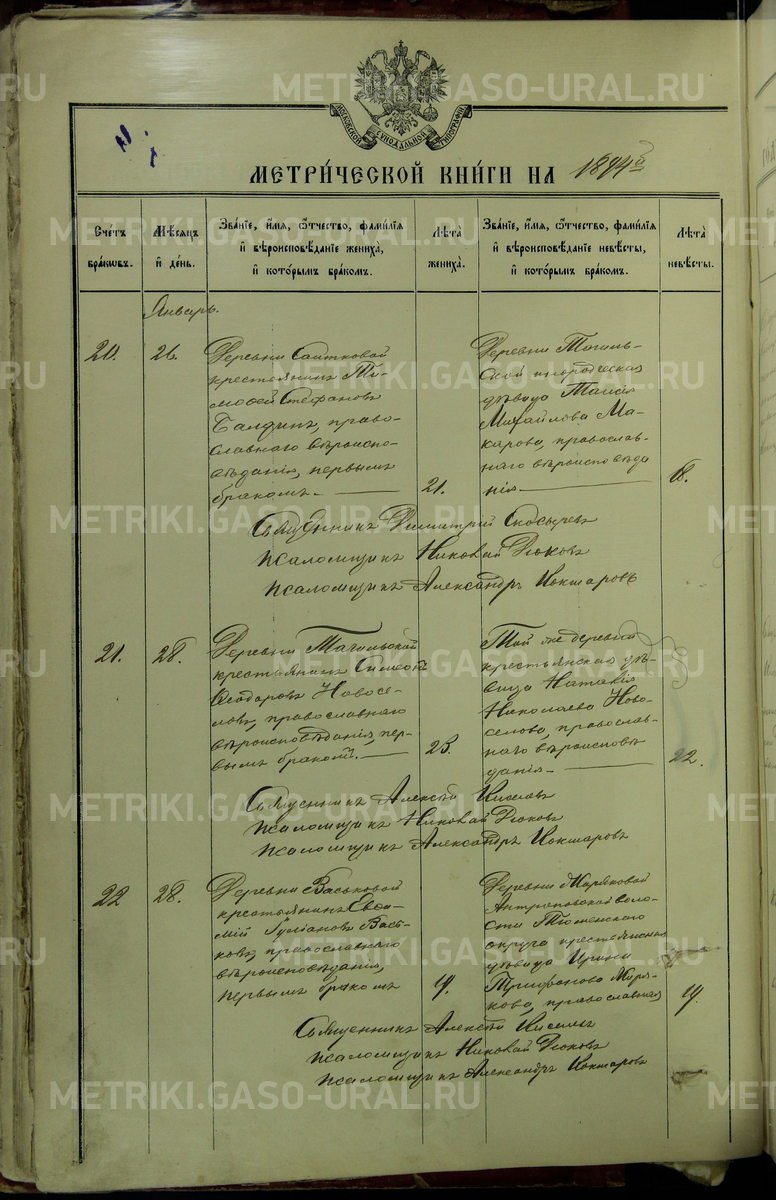 МОСКОВСКОЙ СУНОДАЛЬНОЙ ТИПОГРАФІИ
МЕТРИ́ЧЕСКОЙ КНИ́ГИ НА 1894 г.
Сче́тъ бра́ковъ.
Мѣ́сяцъ и де́нь.
Зва́ніе, и́мя, ѻ҆́тчество, фами́лія и вѣроисповѣ́даніе жениха̀, и кото́рымъ бра́комъ.
Лѣ́та жениха̀.
Зва́ніе, и́мя, ѻ҆́тчество, фами́лія и вѣроисповѣ́даніе невѣ́сты, и кото́рымъ бра́комъ.
Лѣ́та невѣ́сты.
Январь.
20.
26.
Деревни Саитковой
крестьянинъ Ти-
моѳей Стефановъ
Балдинъ, право-
славнаго вѣроиспо-
вѣданія, первымъ
бракомъ.
21.
Деревни Тагиль-
ской инородческая
дѣвица Таисія
Михайлова Ма-
карова, православ-
наго вѣроисповѣда
нія
18.
Священникъ Димитрій Скосыревъ
Псаломщикъ Николай Дюковъ
Псаломщикъ Александръ Кокшаровъ
21.
28.
Деревни Тагильской
крестьянинъ Симеонъ
Ѳеодоровъ Новосе-
ловъ, православнаго
вѣроисповѣданія, пер-
вымъ бракомъ.
23.
Той же деревни
крестьянская дѣ-
вица Наталія
Николаева Ново-
селова, православ-
наго вѣроисповѣ
данія
22.
Священникъ Алексѣй Киселевъ
Псаломщикъ Николай Дюковъ
Псаломщикъ Александръ Кокшаровъ
22
28.
Деревни Васьковой
крестьянинъ Евѳи-
мій Іуліановъ Вась-
ковъ, православнаго
вѣроисповѣданія,
первымъ бракомъ
19.
Деревни Маряковой
Антроповской воло-
сти Тюменскаго
округа крестьянская
дѣвица Ирина
Трифонова Маря-
кова, православная
19.
Священникъ Алексѣй Киселевъ
Псаломщикъ Николай Дюковъ
Псаломщикъ Александръ Кокшаровъ
METRIKI.GASO-URAL.RU